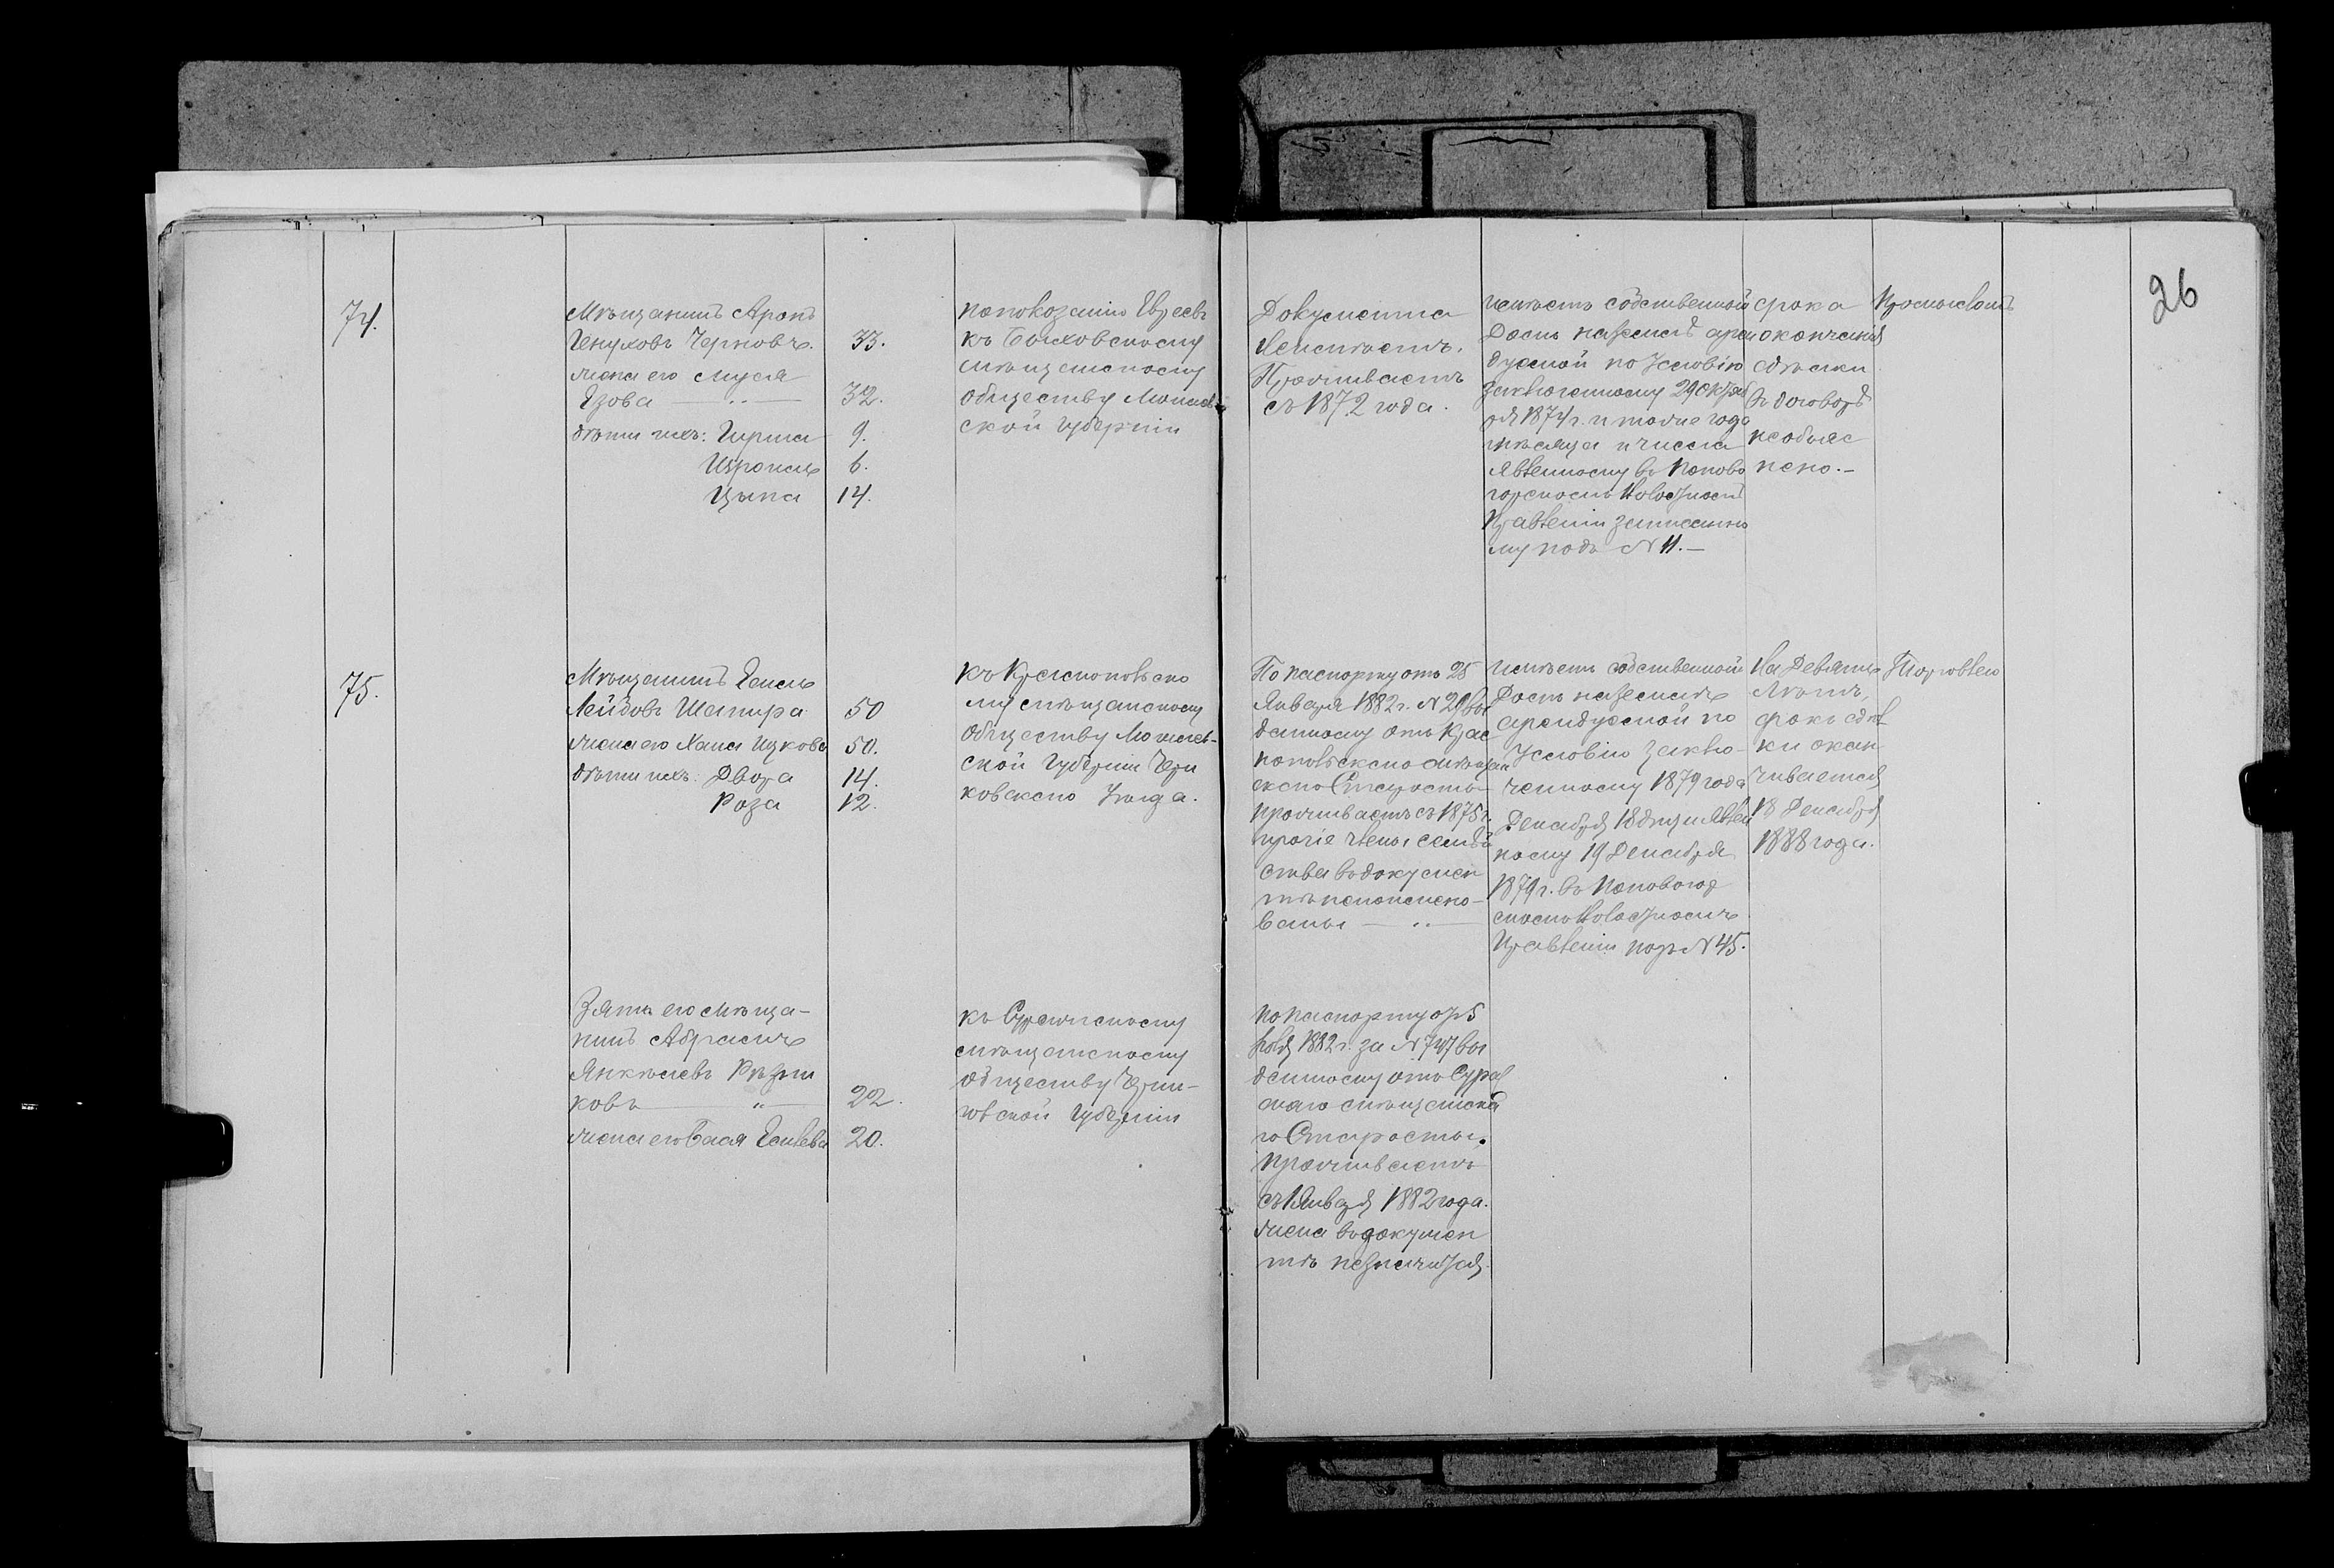 26
74.
Мѣщанинъ Аронъ
Генуховъ Черновъ. 33.
жена его Муся
Езова 32.
дѣти ихъ: Гирша 9.
Израиль 6.
Цыпа 14.
попоказанію Евреевъ
къ Быховскому
мѣщанскому
обществу Могилев
ской Губерніи
Документа
Неимѣетъ.
Проживаетъ
съ 1872 года.
имѣетъ собственной
Домъ наземлѣ арен
дуемой по Условію
Заключенному 29 Октяб
ря 1874 г. и тогоже года
мѣсяца и числа
явленному въ Попово
горскомъ Волостномъ
Правленіи записанно
му подъ N 11.—
срока
окончанія
сдѣлки
въ договорѣ
необъяс
нено.—
75.
Мѣщанинъ Есель
Лейбовъ Шапира 50
жена его Хана Ицкова 50.
дѣти ихъ: Двора 14.
Роза 12.
къ Краснопольско
му мѣщанскому
обществу Могилев-
ской Губерніи Чери
ковскаго Уезда.
По паспорту отъ 25
Января 1882 г. N 29 вы
данному отъ Крас
нопольскаго мѣщан
скаго Старосты
проживаетъ съ 1875 г.
прочіе члены семѣй
ства въ докумен
тѣ непоимено-
ваны
имѣетъ собственной
Домъ наземлѣ
арендуемой по
Условію Заклю-
ченному 1879 года
Декабря 18 дня и явлен
ному 19 Декабря
1879 г. въ Поповогор
скомъ Волостномъ
Правленіи подъ N 45.
На Девять
Лѣтъ,
срокъ сдѣл
ки окан
чивается
18 Декабря
1888 года.
Торговлею
Зять его мѣща-
нинъ Абрамъ
Янкелевъ Рѣзни
ковъ 22.
жена его Бася Еселева 20.
къ Суражскому
мѣщанскому
обществу Черни-
говской Губерніи
По паспорту отъ 5
1882 г. за N 747 вы
данному отъ Сураж
скаго мѣщанска
го Старосты.
Проживаетъ
съ 1 Января 1882 года.
жена въ докумен
тѣ незначится.